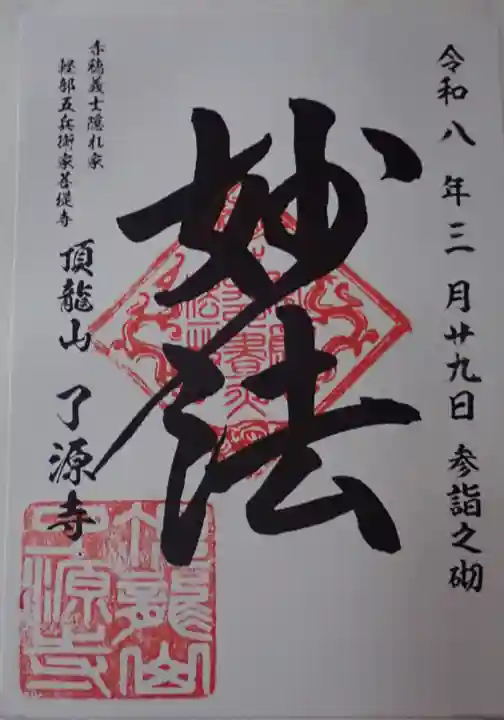 令和八年三月廿九日 参詣之砌
妙法
赤穂義士隠れ家
軽部五兵衛家菩提寺
頂龍山 了源寺
頂龍山
了源寺